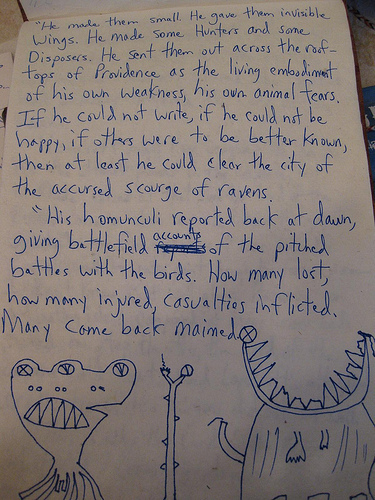 "He made them small. He gave them invisible
Wings. He made some Hunters and some
Disposers. He sent them out across the roof-
tops of Providence as the living embodiment
of his own weakness, his own animal fears.
If he could not write, if he could not be
happy, if others were to be better known,
then at least he could clear the city of
the accursed scourge of ravens.
"His homunculi reported back at dawn,
giving battlefield accounts of the pitched
battles with the birds. How many lost,
how many injured, casualties inflicted.
Many came back maimed.